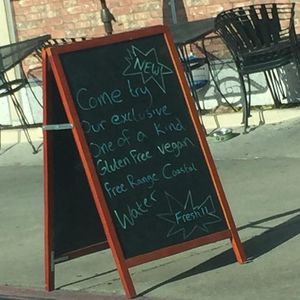 NEW
Come try
Our exclusive
One of a Kind
Gluten Free vegan
Free Range Coastal
Water
Fresh!!